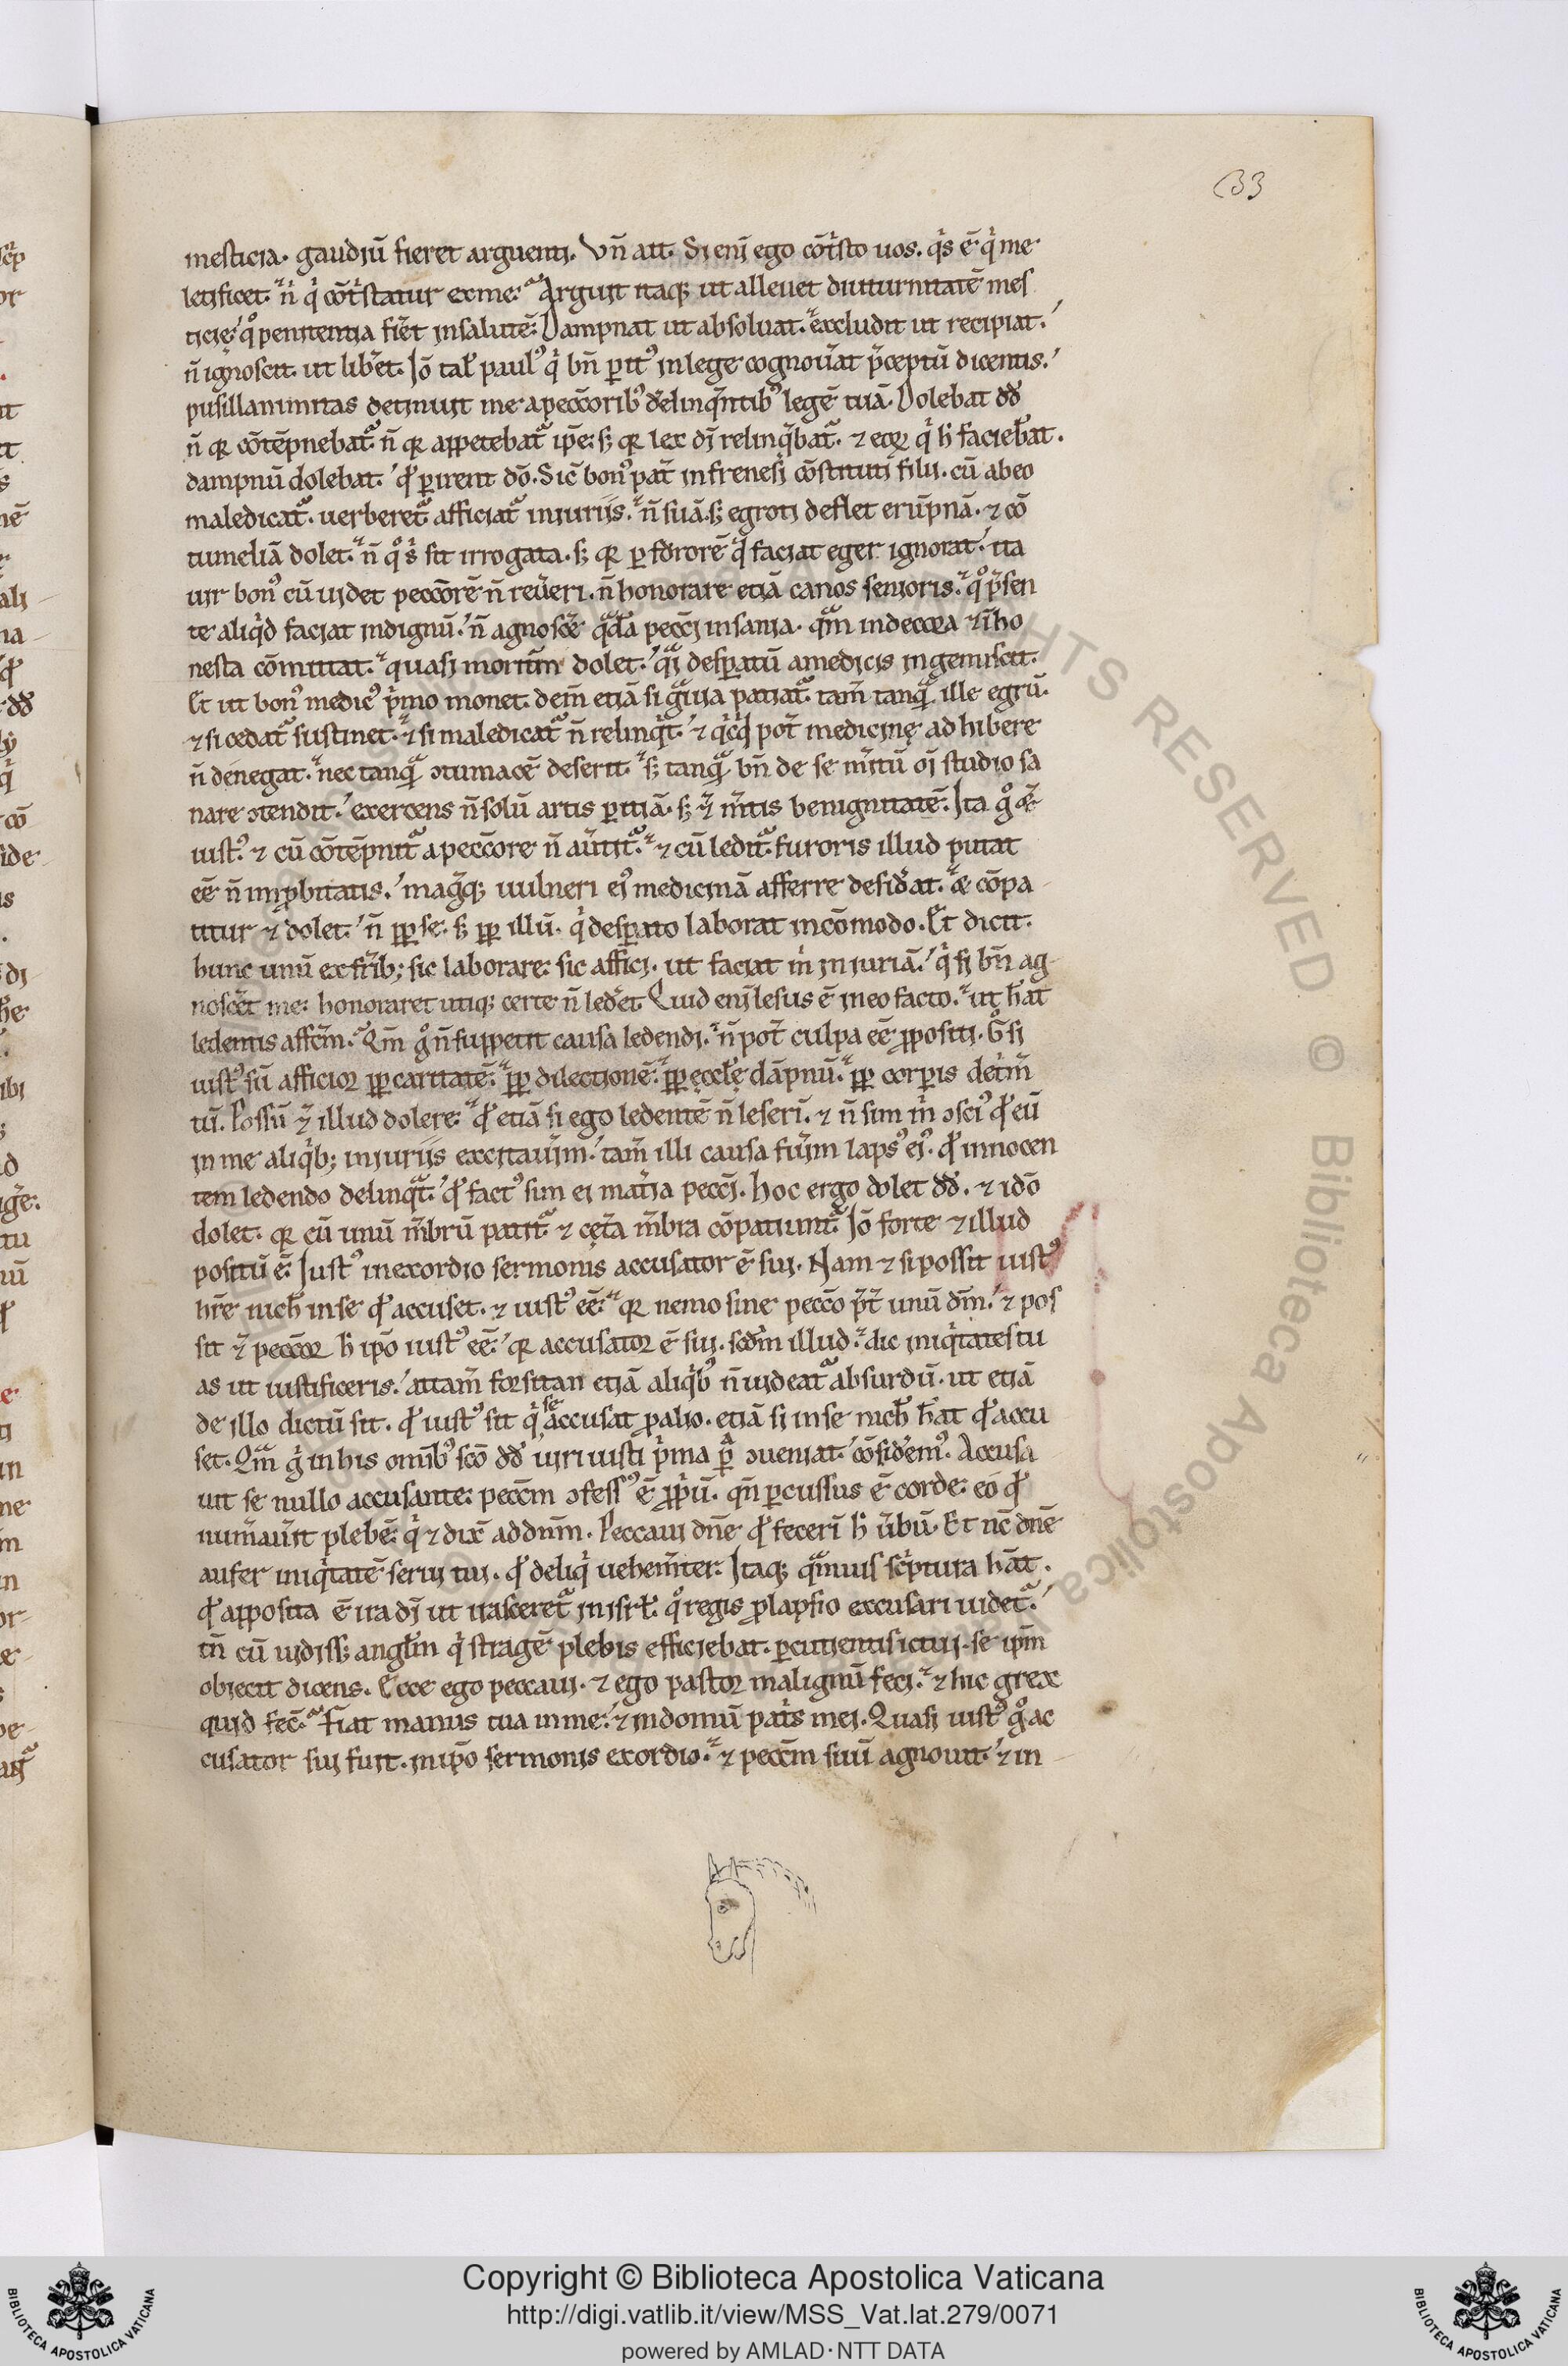 33
mesticia. gaudiũ fieret arguenti. Vñ ait. Si enĩ ego cõtͥsto uos. qͥs ẽ qͥ me
letificet. n̄ qͥ cõtͥstatur ex me. Arguit itaqꝫ ut alleuet diuturnitatẽ mes
ticię. qͦ penitentia fiet̃ in salutẽ. Dampnat ut absoluat. excludit ut recipiat.
n̄ ignoscit. ut libet̃. Iõ tal̃ paulꝰ qͥ bñ ꝑitꝰ in lege cognouãt p̃ceptũ dicentis.
pusillanimitas detinuit me a peccõribꝰ delinq̃ntibꝰ legẽ tuã. Dolebat dd̃
n̄ qꝛ cõtẽpnebat᷑. n̄ qꝛ appetebat᷑ ip̃e. sꝫ qꝛ lex dĩ relinq̃bat᷑. ⁊ eoꝝ qͥ h̃ faciebãt.
dampnũ dolebat. qđ ꝑirent dõ. Sic bonꝰ pat̃ in frenesi cõstituti filii. cũ ab eo
maledicat᷑. uerberet᷑ afficiat᷑ iniuriis. n̄ suã. sꝫ egroti deflet erũpnã. ⁊ cõ
tumeliã dolet. n̄ qͦ sͥ sit irrogata. sꝫ qꝛ ꝑ furorẽ qͥ faciat eger ignorat. ita
uir bonꝰ cũ uidet peccõrẽ n̄ reũeri. n̄ honorare etiã canos senioris. qͦ p̃sen
te aliqͥd faciat indignũ. n̄ agnosce᷑ qᷓdã pecci insania. qm̃ indecora ⁊ ĩho
nesta cõmittat. quasi moritũm dolet. qͣi desꝑatũ a medicis ingemiscit.
Et ut bonꝰ medicꝰ pͥmo monet. dem̃ etiã si gᷓuia patiat᷑. tam̃ tanqᷓ ille egrũ.
⁊ si cedat᷑ sustinet. ⁊ si maledicat᷑ n̄ relinqͥt. ⁊ qͥcqͥd pot̃ medicinę adhibere
n̄ denegat. nec tanqᷓ ꝯtumacẽ deserit. sꝫ tanqᷓ bñ de se mͥitũ oĩ studio sa
nare ꝯtendit. exercens n̄ solũ artis ꝑitiã. sꝫ ⁊̃ m̃tis benignitatẽ. Ita gͦ
iustꝰ ⁊ cũ cõtẽpnit᷑ a peccore n̄ aũtit᷑. ⁊ cũ ledit᷑. furoris illud putat
eẽ n̄ imꝓbitatis. magͥqꝫ uulneri eiꝰ medicinã afferre desidãt. cõpa
titur ⁊ dolet. n̄ ꝓp̃ se. sꝫ ꝓp̃ illũ. qͥ desꝑato laborat incõmodo. Et dicit.
hunc unũ ex fr̃ibꝫ sic laborare. sic affici. ut faciat mͥ iniuriã. qͥ si bñ ag
noscet̃ me. honoraret utiqꝫ certe n̄ ledet̃. Quid enĩ lesus ẽ meo facto. ut hẽat
ledentis affcm̃. Qm̃ gͦ n̄ suppetit causa ledendi. n̄ pot̃ culpa eẽ ꝓpositi. Gͦ si
iustꝰ sũ afficioꝛ ꝓp̃ caritatẽ. ꝓp̃ dilectionẽ. ꝓp̃ eccl̃ę dãpnũ. ꝓp̃ corꝑis detͥm̃
tũ. Possũ ⁊̃ illud dolere. qđ etiã si ego ledentẽ n̄ leserĩ. ⁊ n̄ sim mͥ ꝯsciꝰ qđ eũ
in me aliqͥbꝫ iniuriis excitauerim. tam̃ illi causa fuerim lapsꝰ eiꝰ. qđ innocen
tem ledendo delinqᷓt. qđ factꝰ sim ei matͥia pecci. Hoc ergo dolet dd̃. ⁊ idõ
dolet. qꝛ cũ unũ m̃brũ patit᷑ ⁊ cęt̃a m̃bra cõpatiunt᷑. Iõ forte ⁊ illud
positũ ẽ. Iustꝰ in exordio sermonis accusator ẽ sui. Nam ⁊ si possit iustꝰ
hr̃e nich̃ in se qđ accuset. ⁊ iustꝰ eẽ. qꝛ nemo sine peccõ p̃t unũ dm̃. ⁊ pos
sit ⁊̃ peccoꝛ h̃ ipõ iustꝰ eẽ. qꝛ accusatoꝛ ẽ sui. scdm̃ illud. dic iniqͥtates tu
as ut iustificeris. attam̃ forsitan etiã aliqͥbꝰ n̄ uideat᷑ absurdũ. ut etiã
de illo dictũ sit. qđ iustꝰ sit qͥ se accusat ꝓ alio. etiã si in se nich̃ hẽat qđ accu
set. Qm̃ gͥ in his omĩbꝰ scõ dd̃ uiri iusti pͥma ꝑᷓ ꝯueniat. cõsidemꝰ. Accusa
uit se nullo accusante. peccm̃ ꝯfessꝰ ẽ ꝓpͥũ. qñ ꝑcussus ẽ corde. eo qđ
num̃auit̃ plebẽ. qͥ ⁊ dix̃ ad dnm̃. Peccaui dñe qđ fecerĩ h̃ ũbũ. Et nc̃ dñe
aufer iniqͥtatẽ serui tui. qđ deliqͥ uehem̃ter. Itaqꝫ qᷓmuis scͥptura hẽat.
qđ apposita ẽ ira dĩ ut irasceret᷑ in isrl̃. qͦ regis ꝓlapsio excusari uidet᷑.
tñ cũ uidissꝫ angl̃m qͥ stragẽ plebis efficiebat. ꝑcutientis ictui. se ipm̃
obiecit dicens. Ecce ego peccaui. ⁊ ego pastoꝛ malignũ feci. ⁊ hic grex
quid fec̃. Fiat manus tua in me. ⁊ in domũ patͥs mei. Quasi iustꝰ gͦ ac
cusator sui fuit. in ipõ sermonis exordio. ⁊ peccm̃ suũ agnouit. ⁊ in
Copyright © Biblioteca Apostolica Vaticana
http://digi.vatlib.it/view/MSS_Vat.lat.279/0071
powered by AMLAD·NTT DATA